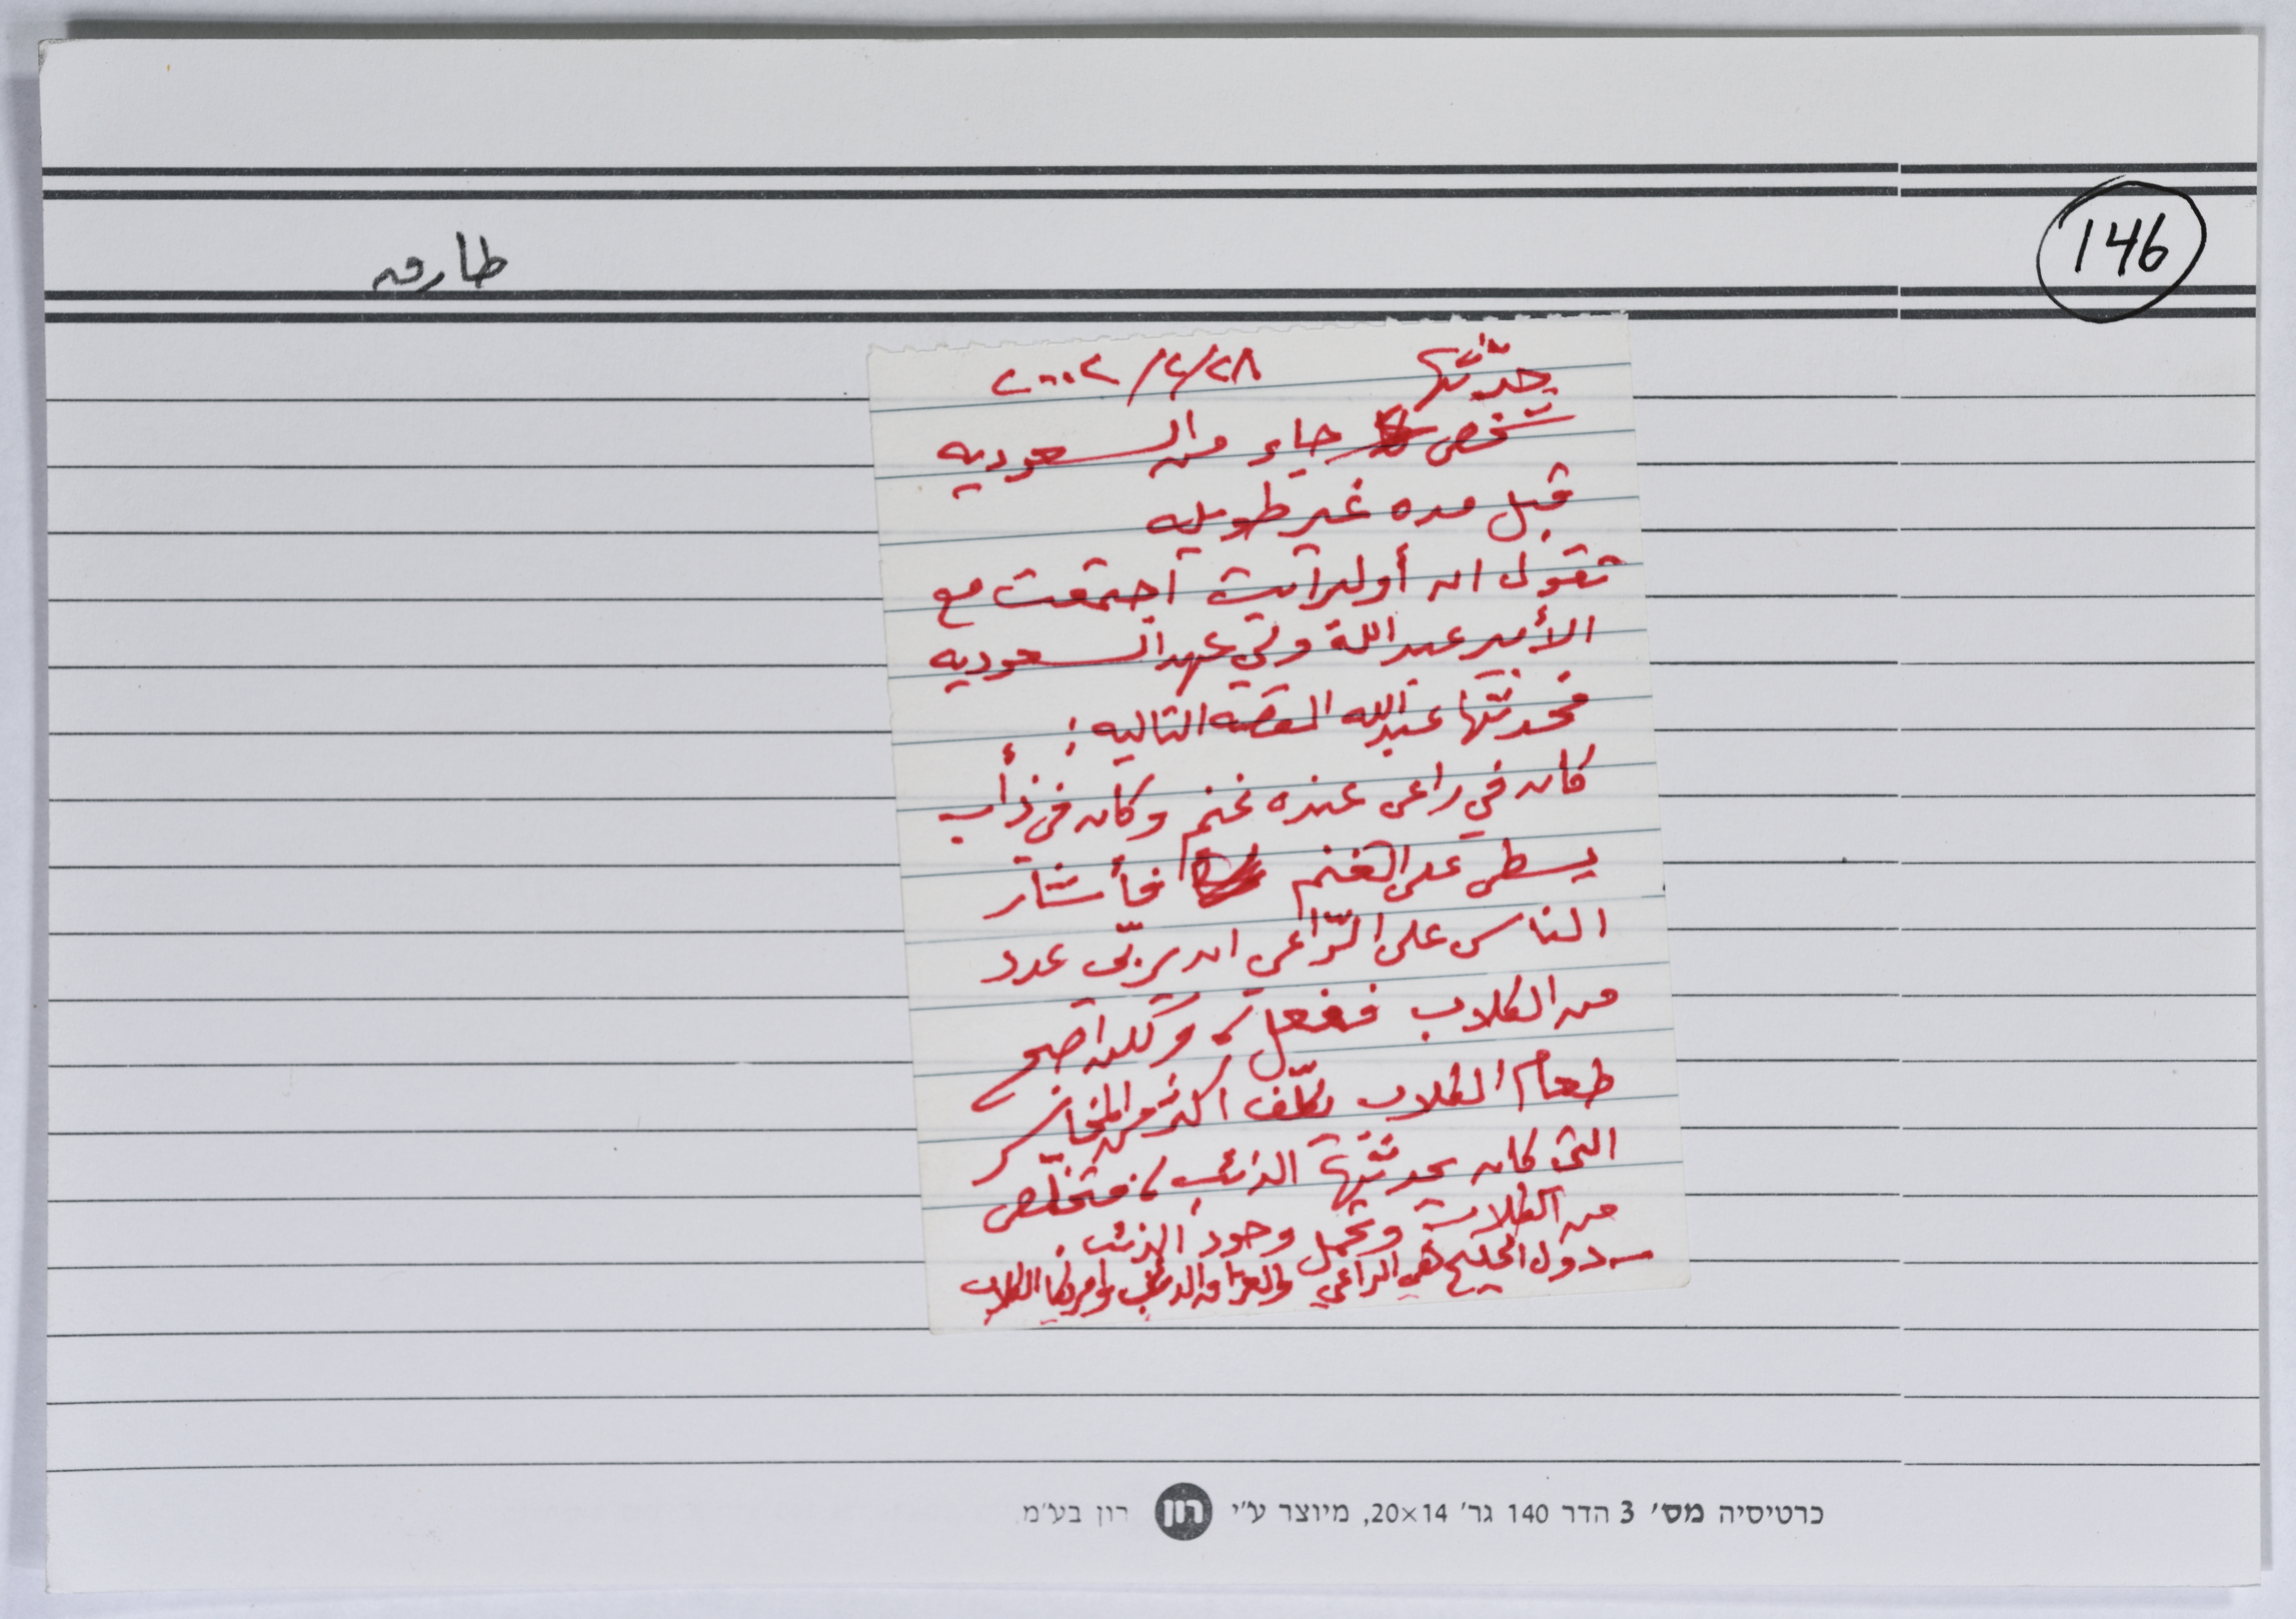 146
طارق
حدّثها ٢٨/٢/٢٠٠٢
شخص جاء من السعوديه
قبل مده غير طويله
تقول ان أولبرايت اجتمعت مع
الأمير عبد الله ولي عهد السعوديه
فحدثها عبدالله القصة التاليه :
كان في راعي عنده غنم وكان في ذأب
يسطي على الغنم فأشار
الناس على الرّاعي ان يربّي عدد
من الكلاب ففعل، ولكن اصبح
طعام الكلاب يكلّف اكثر من المخاسر
التي كان يحدثها الذئب، فتخلّص
من الكلاب وتحمل وجود الذئب.
- دول الخليج هي الراعي والعراق الذئب وامريكا الكلاب
כרטיסיה מס׳ 3 הדר 140 גר׳ 20×14, מיוצר ע״י רון רון בע״מ